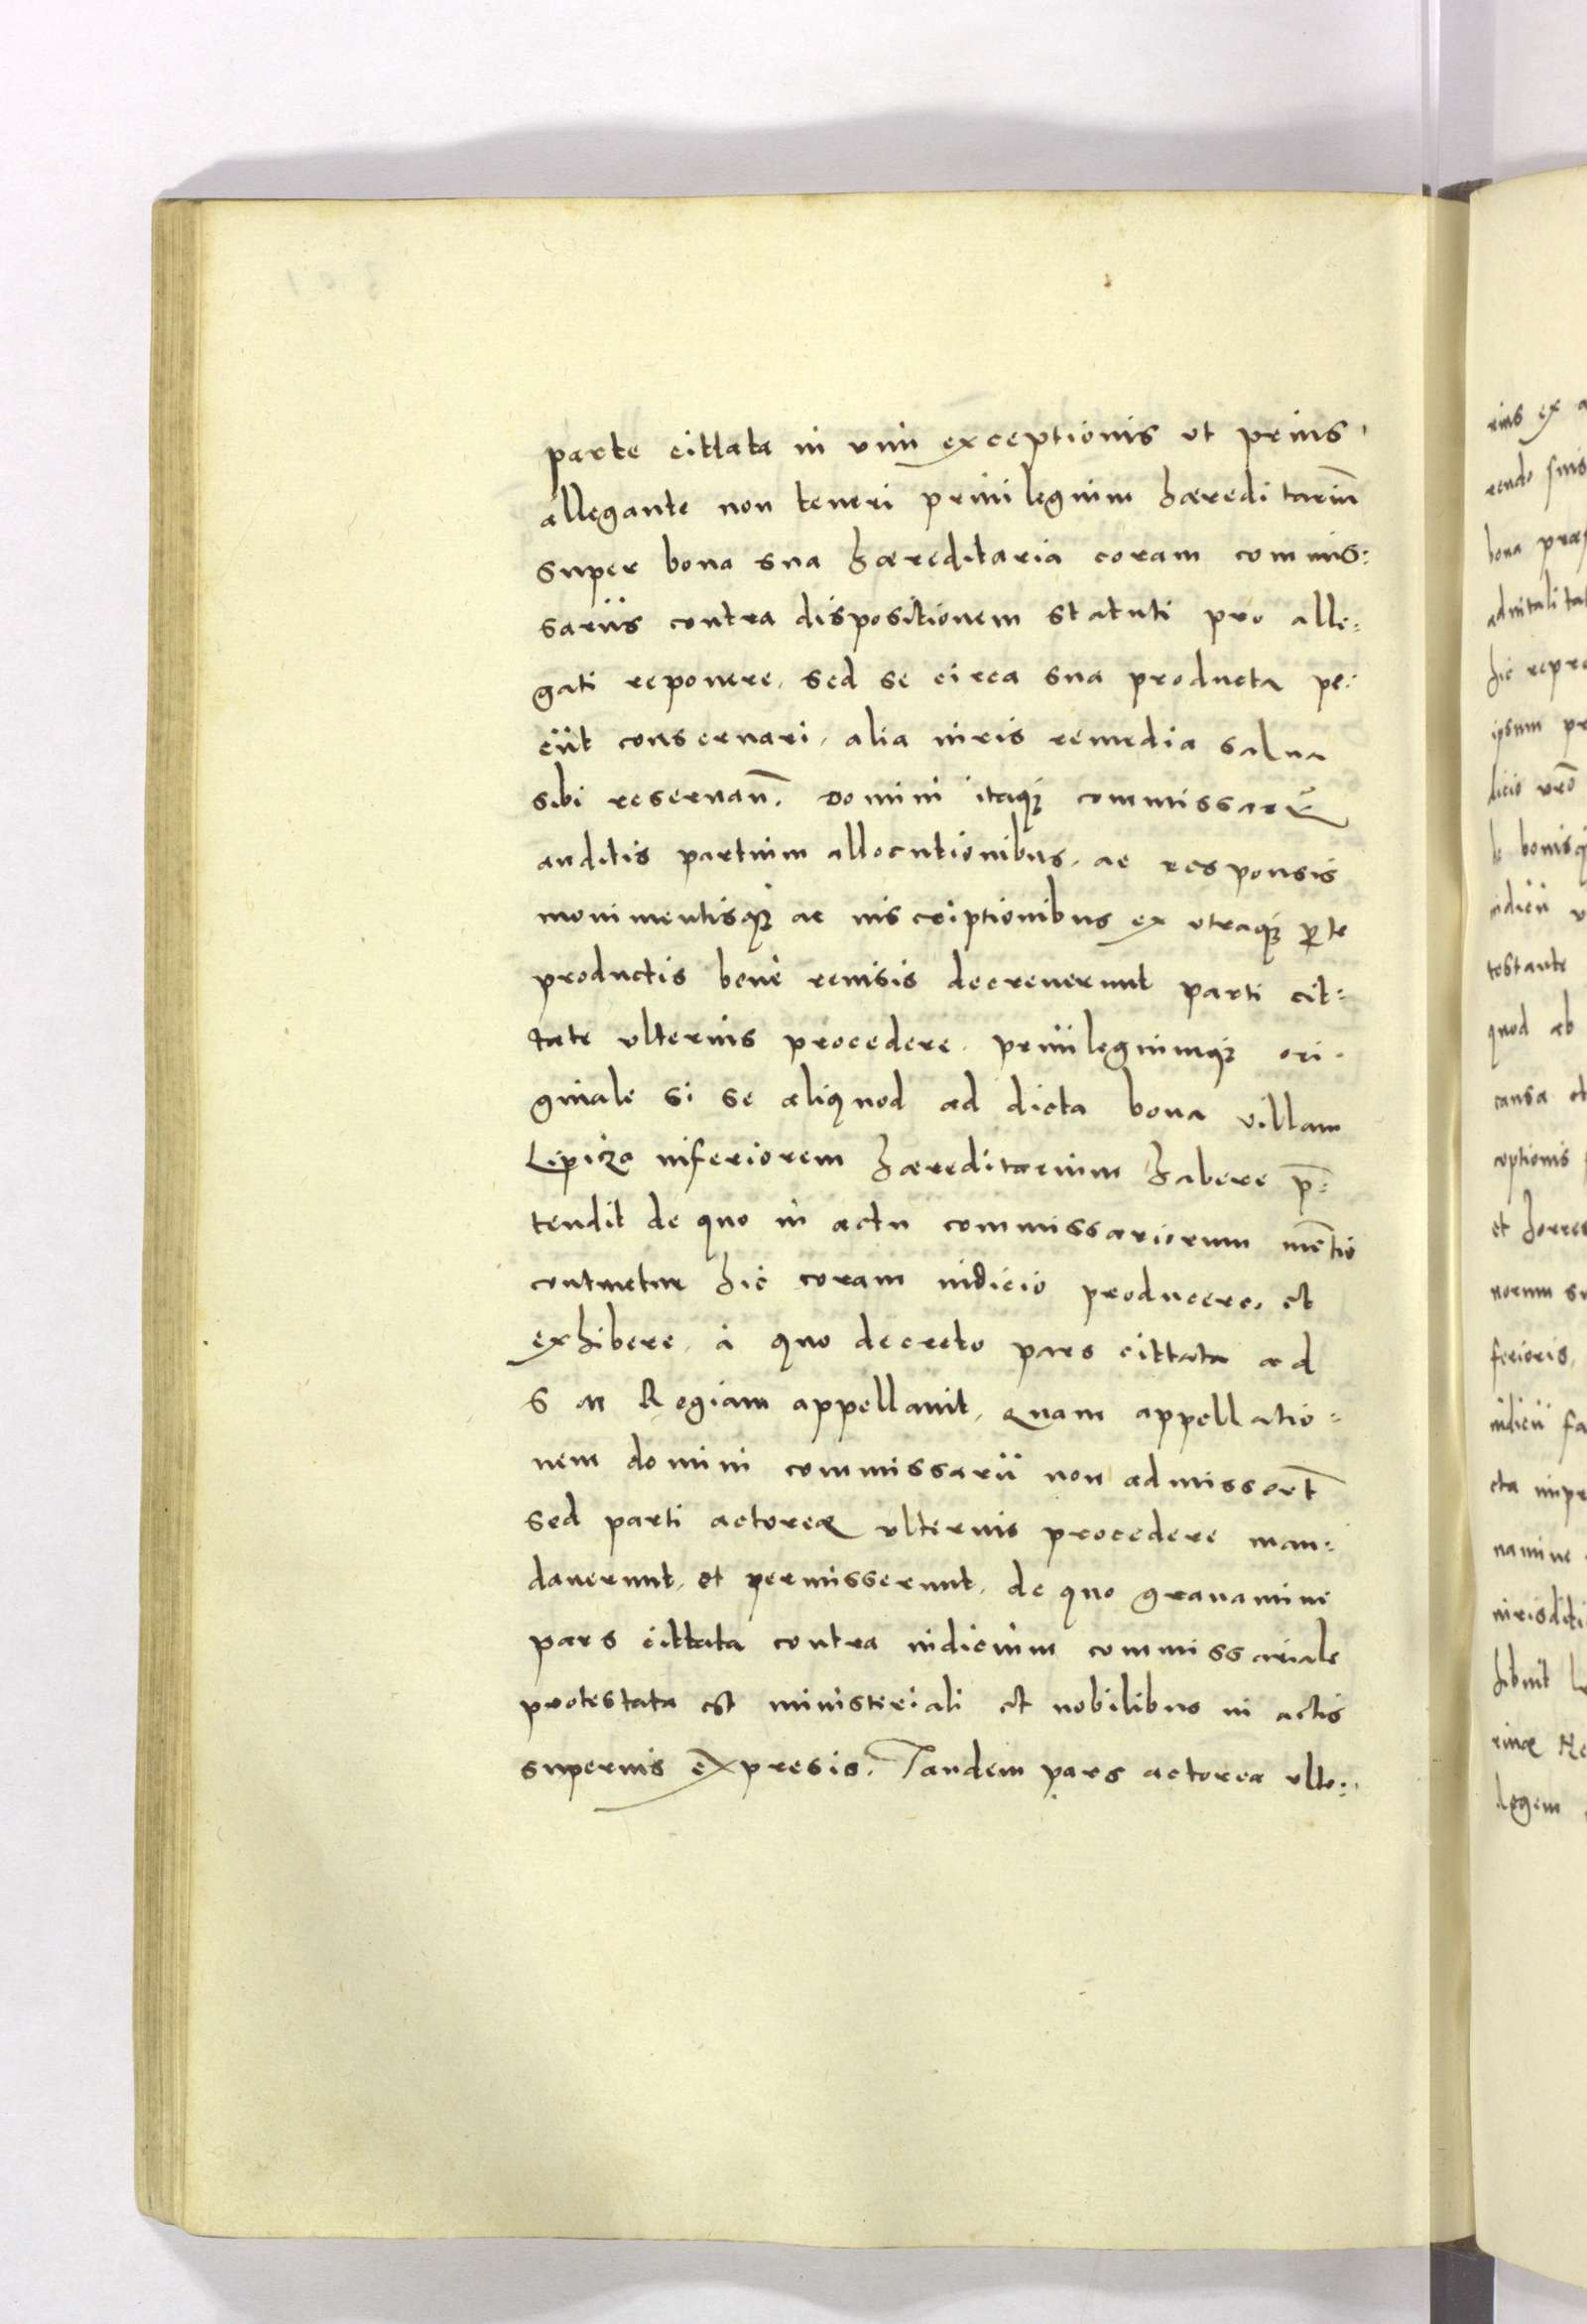 parte cittata in vim exceptionis ut prius
allegante non teneri priuilegium hæreditariũ
super bona sua hæreditaria coram commis:
sariis contra dispositionem statuti pro alle:
gati reponere, sed se circa sua producta pe:
tiit conseruari, alia iuris remedia salua
sibi reseruañ. Domini itaq3 commissarii
auditis partium allocutionibus, ac responsis
monimentisq3 ac inscriptionibus ex utraq3 p̱te
productis bene reuisis decreuerunt parti cit:
tate vlterius procedere, priuilegiumq3 ori:
ginale si se aliquod ad dicta bona villam
Lipicza inferiorem hæreditarium habere p̄:
tendit de quo in actu commissariorum mētio
continetur hic coram iudicio producere, et
exhibere, à quo decreto pars cittata ad
S M Regiam appellauit, quam appellatio:
nem domini commissarii non admisserũt
sed parti actoreæ vlterius procedere man:
dauerunt, et permisserunt, de quo grauamine
pars cittata contra iudicium commissariale
protestata est ministeriali et nobilibus in actis
superius expresis. Tandem pars actorea vlte:
rius ex
rendo suis
bona
aduitalitat
hic
ipsum
dicio vr̃o
bonisq3
iudicii
testante
quod ab
causa et
ceptionis
et
norum
ferioris,
iudicii
cta
namine
iurisditi
hibuit
rinæ
legem